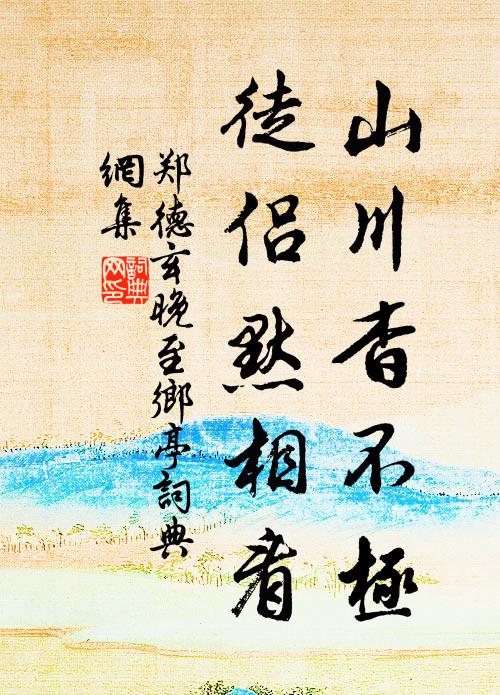 山川杳不極
徒侶默相看
郑德玄晚至鄉亭詞典
網集
詞典
网印